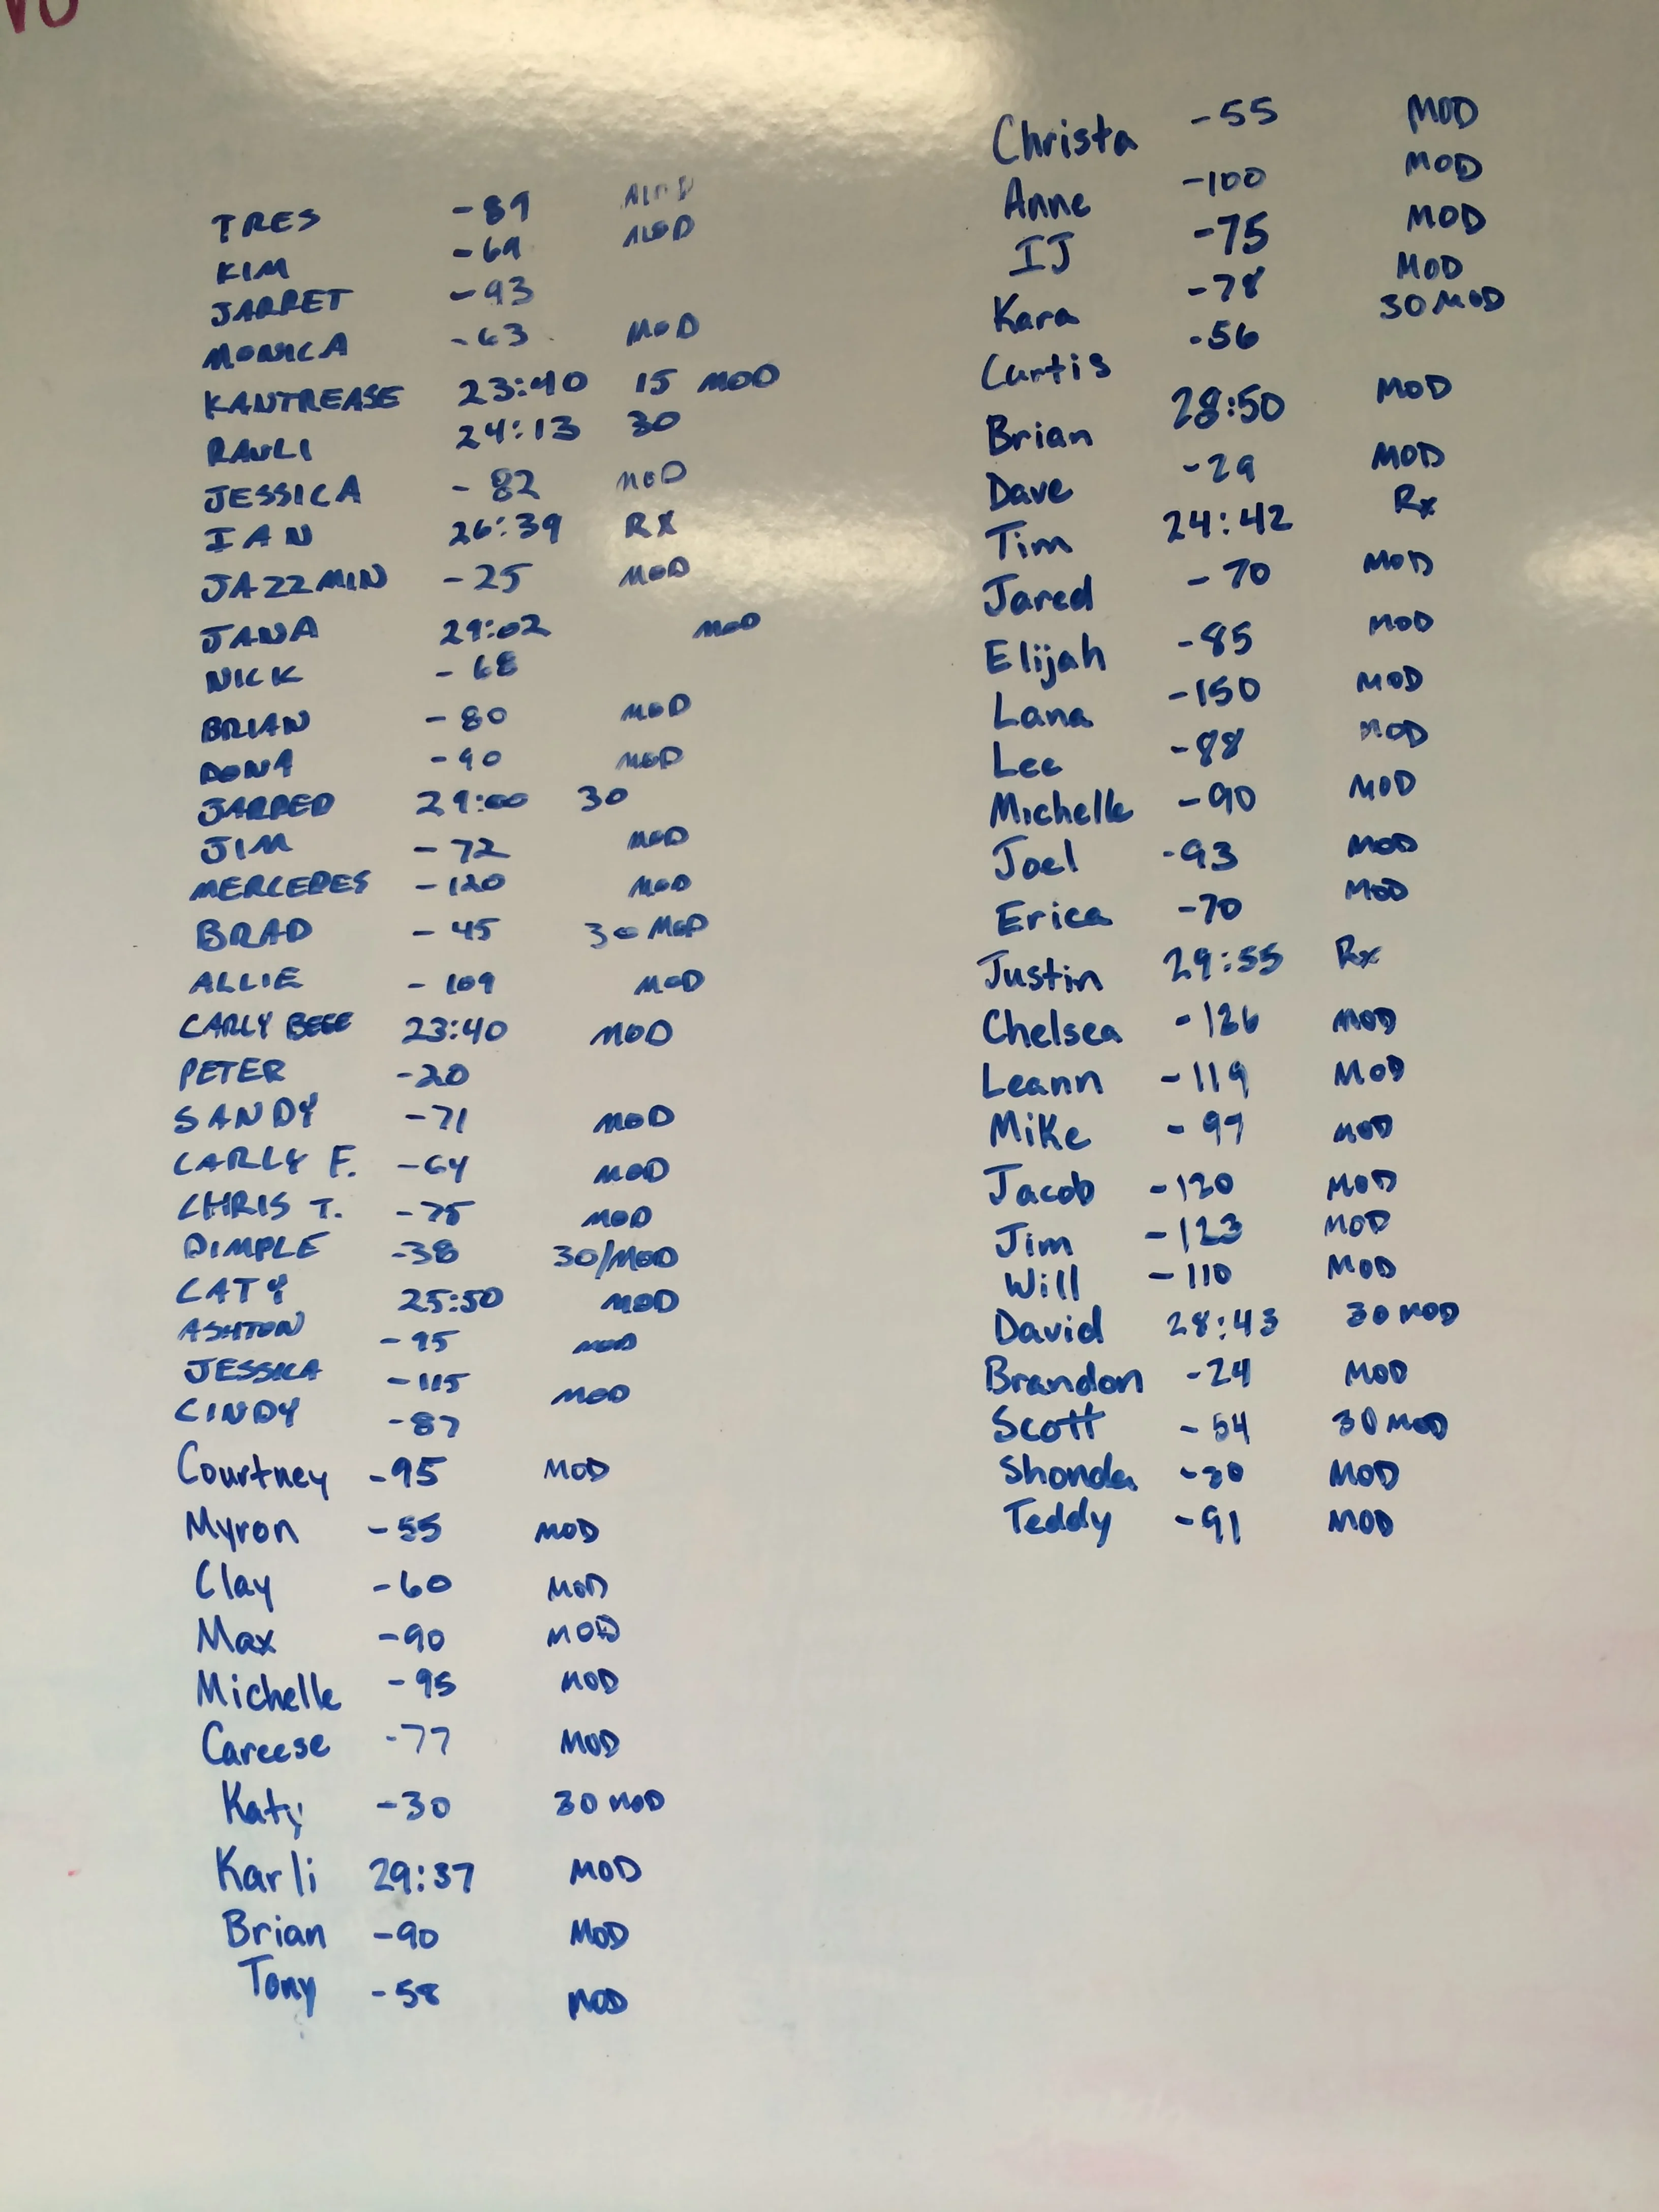 TRES -89 MOD
KIM -69 MOD
JARRET -93
MONICA -63 MOD
KANTREASE 23:40 15 MOD
RAULI 24:13 30
JESSICA -82 MOD
IAN 26:39 RX
JAZZMIN -25 MOD
JANA 29:02 MOD
NICK -68
BRIAN -80 MOD
DONA -90 MOD
JARRED 29:00 30
JIM -72 MOD
MERCEDES -120 MOD
BRAD -45 30 MOD
ALLIE -109 MOD
CARLY 23:40 MOD
PETER -20
SANDY -71 MOD
CARLY F. -64 MOD
CHRIS T. -75 MOD
DIMPLE -38 30/MOD
CATY 25:50 MOD
ASHTON -95 MOD
JESSICA -115 MOD
CINDY -87
Courtney -95 MOD
Myron -55 MOD
Clay -60 MOD
Max -90 MOD
Michelle -95 MOD
Careese -77 MOD
Katy -30 30 MOD
Karli 29:37 MOD
Brian -90 MOD
Tony -58 MOD
Christa -55 MOD
Anne -100 MOD
IJ -75 MOD
Kara -78 MOD
Curtis -56 30 MOD
Brian 28:50 MOD
Dave -29 MOD
Tim 24:42 Rx
Jared -70 MOD
Elijah -85 MOD
Lana -150 MOD
Lee -88 MOD
Michelle -90 MOD
Joel -93 MOD
Erica -70 MOD
Justin 29:55 Rx
Chelsea -126 MOD
Leann -119 MOD
Mike -97 MOD
Jacob -120 MOD
Jim -123 MOD
Will -110 MOD
David 28:43 30 MOD
Brandon -24 MOD
Scott -54 30 MOD
Shonda MOD
Teddy -91 MOD